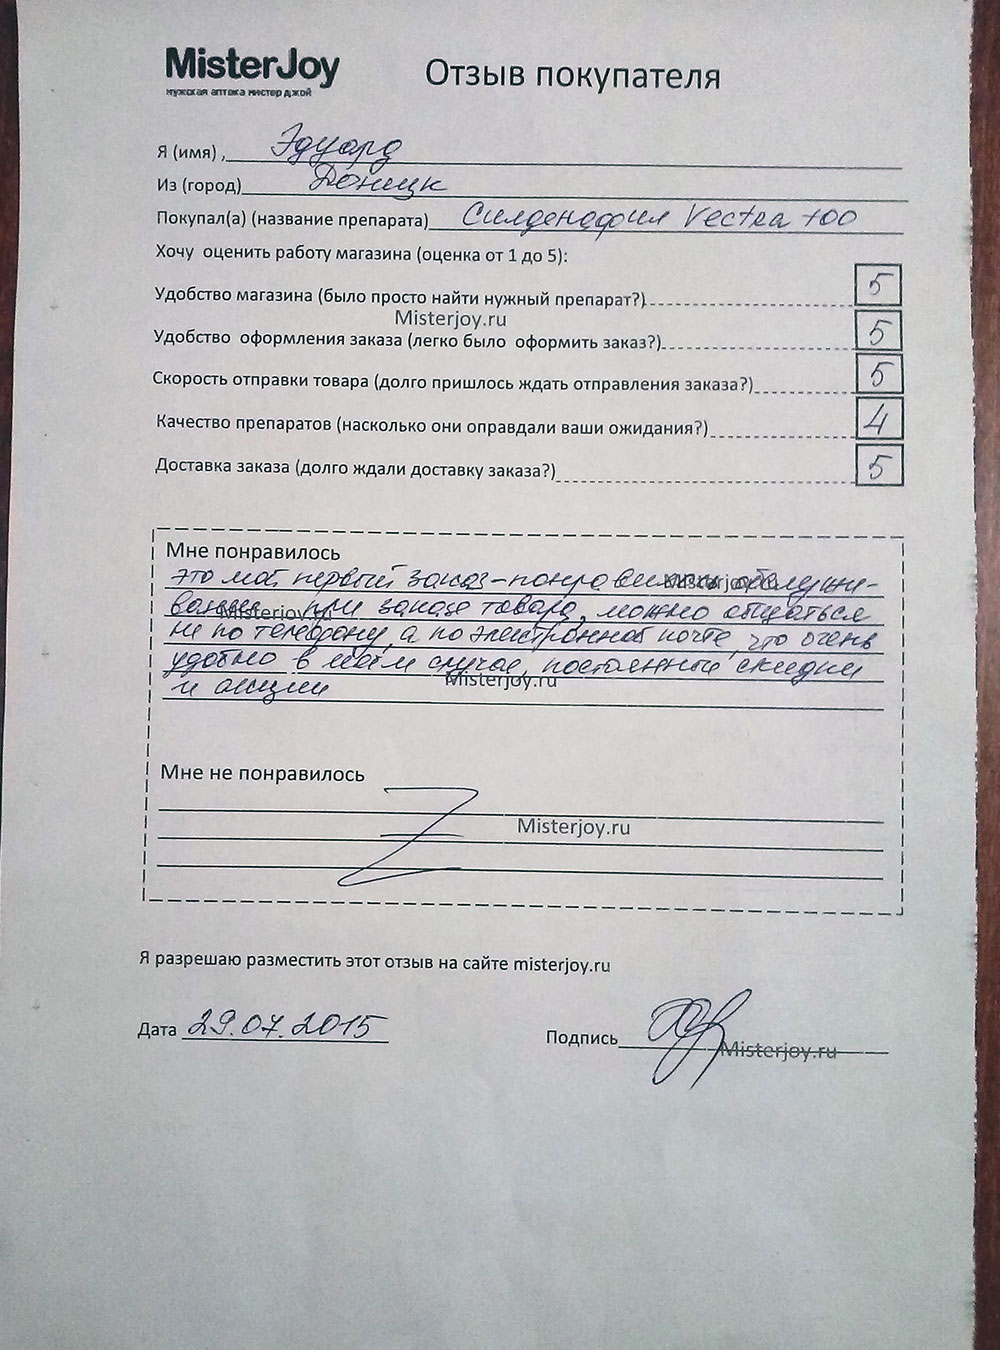 MisterJoy
мужская аптека мистер джой
Отзыв покупателя
Я (имя) , Эдуард
Из (город) Донецк
Покупал(а) (название препарата) Силденафил Vectra 100
Хочу оценить работу магазина (оценка от 1 до 5):
Удобство магазина (было просто найти нужный препарат?) 5
Misterjoy.ru
Удобство оформления заказа (легко было оформить заказ?) 5
Скорость отправки товара (долго пришлось ждать отправления заказа?) 5
Качество препаратов (насколько они оправдали ваши ожидания?) 4
Доставка заказа (долго ждали доставку заказа?) 5
Мне понравилось
это мой первый заказ - понравилось обслужи-
Misterjoy.ru
вание при заказе товара, можно общаться
Misterjoy.ru
не по телефону, а по электронной почте, что очень
удобно в моём случае, постоянные скидки
Misterjoy.ru
и акции
Мне не понравилось
Misterjoy.ru
Я разрешаю разместить этот отзыв на сайте misterjoy.ru
Дата 29.07.2015
Подпись
Misterjoy.ru